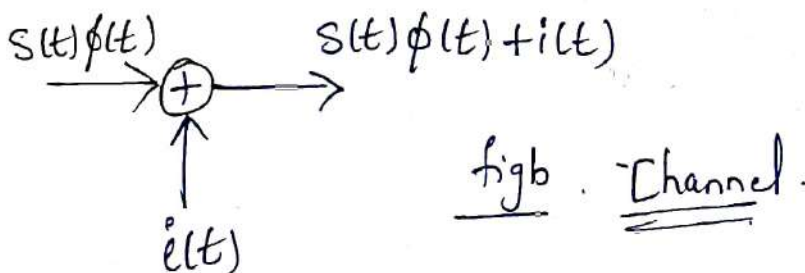 S(t)ϕ(t)
S(t)ϕ(t)+i(t)
+
i(t)
figb. Channel.